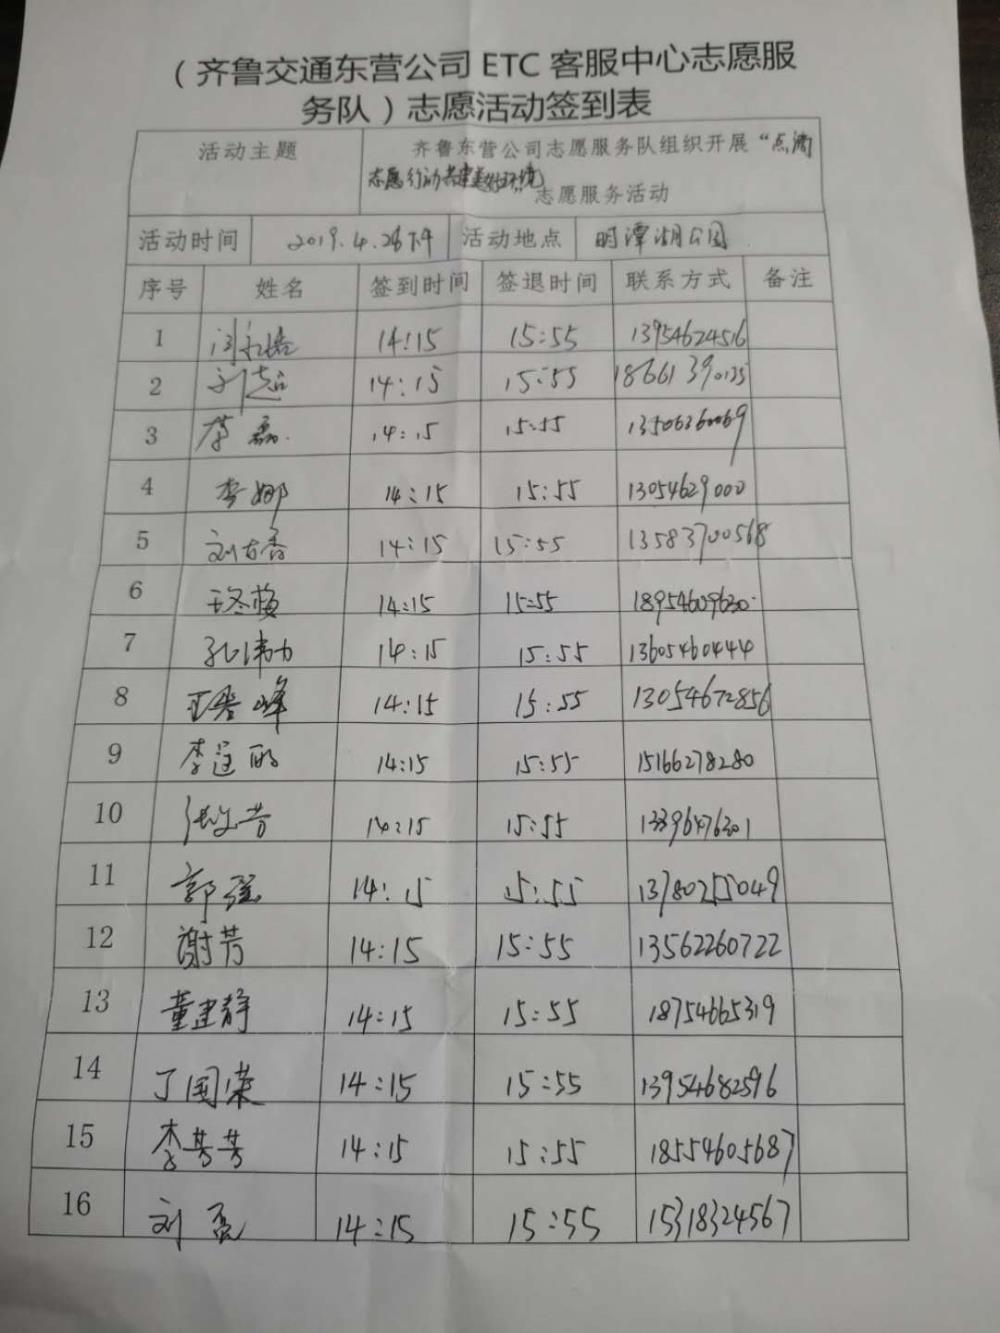 （齐鲁交通东营公司 ETC 客服中心志愿服
务队）志愿活动签到表
活动主题 齐鲁东营公司志愿服务队组织开展“点滴
志愿行动共建美好环境
志愿服务活动
活动时间 2019.4.26下午 活动地点 明潭湖公园
序号 姓名 签到时间 签退时间 联系方式 备注
1 14:15 15:55 13954624516
2 14:15 15:55 18661390135
3 李磊 14:15 15:55 13506360069
4 李娜 14:15 15:55 13054629000
5 刘春香 14:15 15:55 13583700568
6 王冬梅 14:15 15:55 18954609630
7 孔伟力 14:15 15:55 13605460444
8 王秀峰 14:15 15:55 13054672856
9 14:15 15:55 15166278280
10 张文芳 14:15 15:55 13396476301
11 郭强 14:15 15:55 13780255049
12 谢芳 14:15 15:55 13562260722
13 董建静 14:15 15:55 18754665319
14 丁国荣 14:15 15:55 13954682596
15 李芳芳 14:15 15:55 18554605687
16 刘 14:15 15:55 15318324567